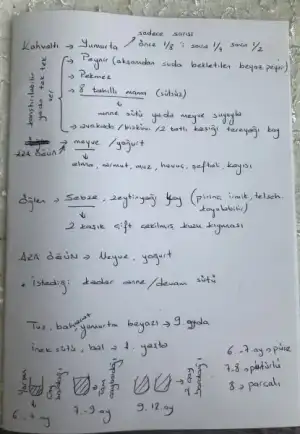 sadece sarısı
Kahvaltı → Yumurta önce 1/8, sonra 1/4 sonra 1/2
→ Peynir (akşamdan suda bekletilen beyaz peynir)
→ Pekmez
→ 8 tahıllı mama (sütsüz)
anne sütü yada meyve suyuyla
→ avakado / bisküvi / 2 tatlı kaşığı tereyağı koy
karıştırılabilir yada tek tek ver
ARA ÖĞÜN → meyve / yoğurt
elma, armut, muz, havuç, şeftali, kayısı
Öğlen → Sebze, zeytinyağı koy (pirinç, irmik, tel şeh. koyulabilir)
2 kaşık çift çekilmiş kuzu kıyması
ARA ÖĞÜN → Meyve, yoğurt
• istediği kadar anne / devam sütü
Tuz, baharat, yumurta beyazı → 9. ayda
inek sütü, bal → 1. yaşta
6-7. ay → püre
7-8 → pütürlü
8 → parçalı
Yarım çay bardağı
6-7. ay
Tam çay bardağı
7-9. ay
2 çay bardağı
9-12. ay